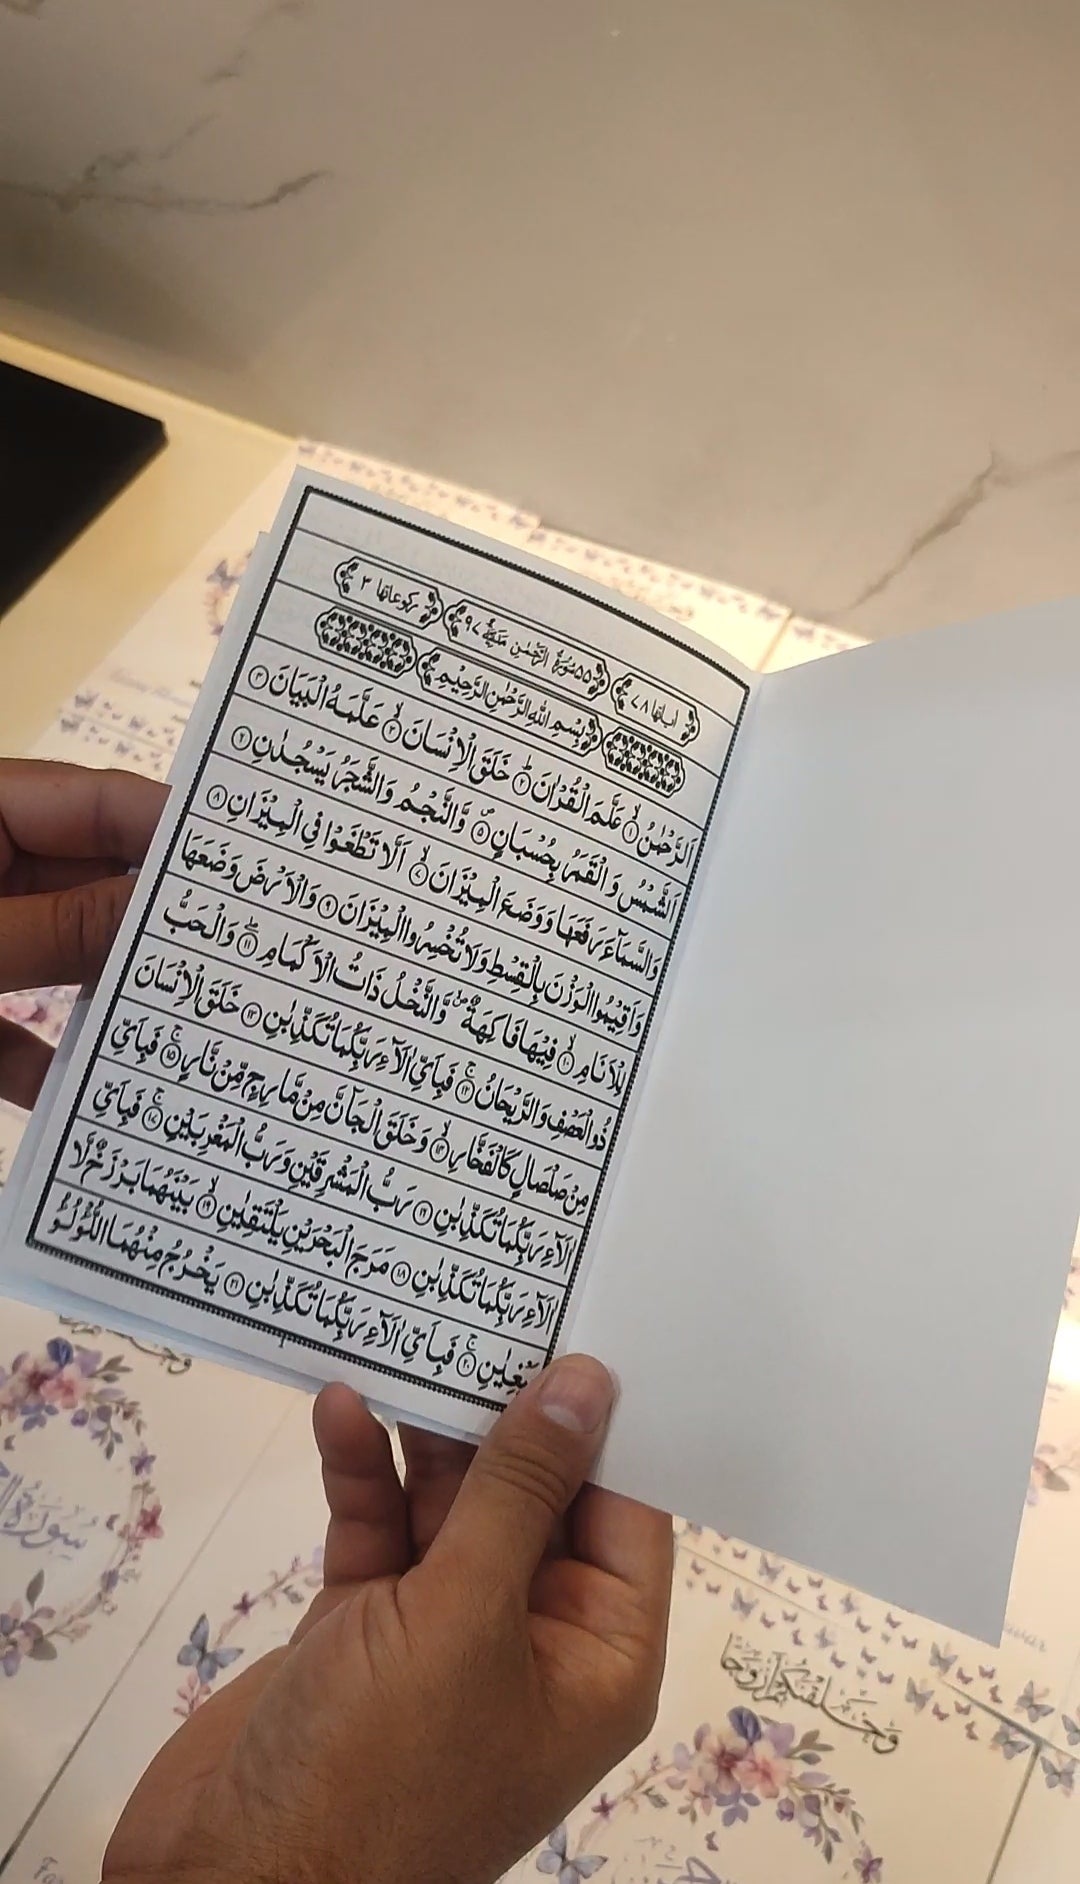 اٰیاتها ۷۸ ۵۵ سُوْرَةُ الرَّحْمٰنِ مَدَنِيَّةٌ ۹۷ رکوعاتها ۳
بِسْمِ اللّٰهِ الرَّحْمٰنِ الرَّحِيْمِ
اَلرَّحْمٰنُ ۙ﴿۱﴾ عَلَّمَ الْقُرْاٰنَ ؕ﴿۲﴾ خَلَقَ الْاِنْسَانَ ۙ﴿۳﴾ عَلَّمَهُ الْبَيَانَ ﴿۴﴾
اَلشَّمْسُ وَ الْقَمَرُ بِحُسْبَانٍ ۪﴿۵﴾ وَّ النَّجْمُ وَ الشَّجَرُ يَسْجُدٰنِ ﴿۶﴾
وَ السَّمَآءَ رَفَعَهَا وَ وَضَعَ الْمِيْزَانَ ۙ﴿۷﴾ اَلَّا تَطْغَوْا فِي الْمِيْزَانِ ﴿۸﴾
وَ اَقِيْمُوا الْوَزْنَ بِالْقِسْطِ وَ لَا تُخْسِرُوا الْمِيْزَانَ ﴿۹﴾ وَ الْاَرْضَ وَضَعَهَا
لِلْاَنَامِ ۙ﴿۱۰﴾ فِيْهَا فَاكِهَةٌ ۪ۙ وَّ النَّخْلُ ذَاتُ الْاَكْمَامِ ۖ﴿۱۱﴾ وَ الْحَبُّ
ذُو الْعَصْفِ وَ الرَّيْحَانُ ۚ﴿۱۲﴾ فَبِاَيِّ اٰلَآءِ رَبِّكُمَا تُكَذِّبٰنِ ﴿۱۳﴾ خَلَقَ الْاِنْسَانَ
مِنْ صَلْصَالٍ كَالْفَخَّارِ ۙ﴿۱۴﴾ وَ خَلَقَ الْجَآنَّ مِنْ مَّارِجٍ مِّنْ نَّارٍ ۚ﴿۱۵﴾ فَبِاَيِّ
اٰلَآءِ رَبِّكُمَا تُكَذِّبٰنِ ﴿۱۶﴾ رَبُّ الْمَشْرِقَيْنِ وَ رَبُّ الْمَغْرِبَيْنِ ۚ﴿۱۷﴾ فَبِاَيِّ
اٰلَآءِ رَبِّكُمَا تُكَذِّبٰنِ ﴿۱۸﴾ مَرَجَ الْبَحْرَيْنِ يَلْتَقِيٰنِ ۙ﴿۱۹﴾ بَيْنَهُمَا بَرْزَخٌ لَّا
يَبْغِيٰنِ ۚ﴿۲۰﴾ فَبِاَيِّ اٰلَآءِ رَبِّكُمَا تُكَذِّبٰنِ ﴿۲۱﴾ يَخْرُجُ مِنْهُمَا اللُّؤْلُؤُ
۱
وَخَلَقْنٰكُمْ اَزْوَاجًا